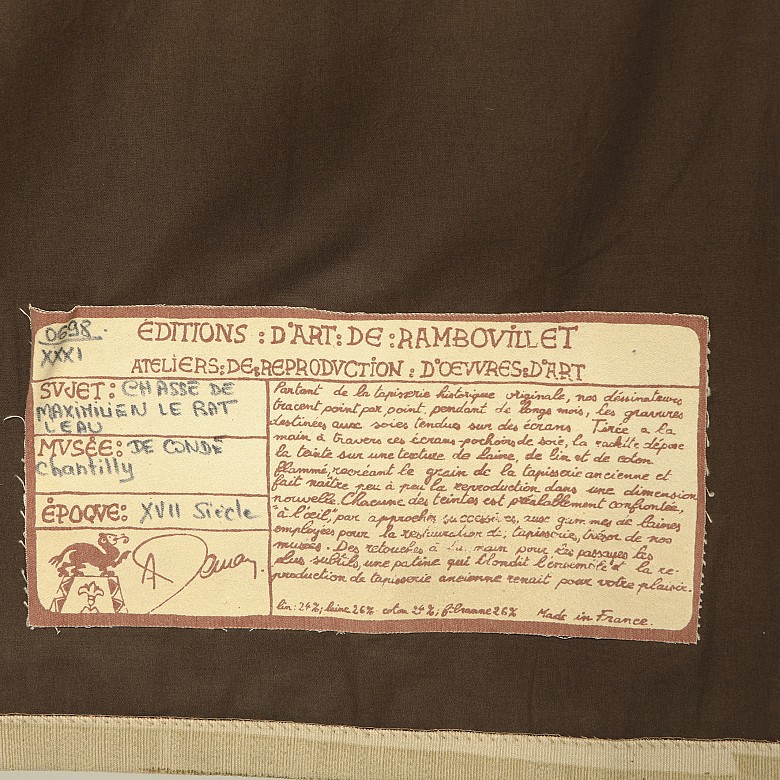 0698.
XXXI
ÉDITIONS : D'ART : DE : RAMBOVILLET
ATELIERS : DE : REPRODVCTION : D'OEVVRES : D'ART
SVJET : CHASSE DE
MAXIMILIEN LE RAT
L'EAU
MVSÉE : DE CONDÉ
Chantilly
ÉPOQVE : XVII Siècle
Partant de la tapisserie historique originale, nos dessinateurs
tracent point par point, pendant de longs mois, les gravures
destinées aux soies tendues sur des écrans. Tirée a la
main à travers ces écrans-pochoirs de soie, la raclette dépose
la teinte sur une texture de laine, de lin et de coton
flammé, recréant le grain de la tapisserie ancienne et
fait naître peu à peu la reproduction dans une dimension
nouvelle. Chacune des teintes est préalablement confrontée,
"à l'œil", par approches successives, aux gammes de laines
employées pour la restauration de tapisseries, trésor de nos
musées. Des retouches à la main pour les passages les
plus subtils, une patine qui l'ondit l'ensemble et la re-
production de tapisserie ancienne renait pour votre plaisir.
lin : 24%; laine 26% coton 24%; fibranne 26% Made in France.